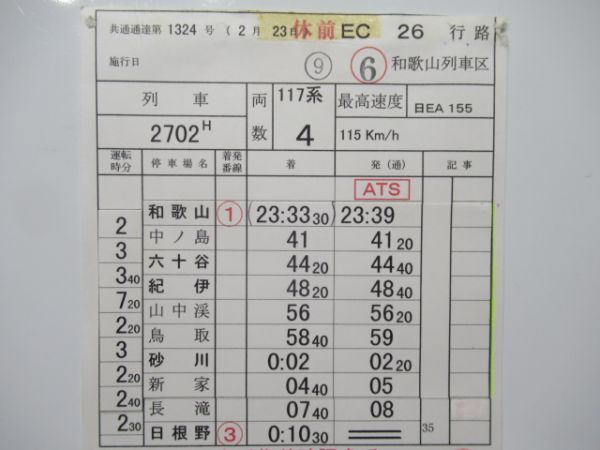 共通通達第1324号 (2月23日) 休前 EC 26 行路
施行日 ⑨ ⑥ 和歌山列車区
列車 両数 117系 最高速度 日EA 155
2702H 4 115 Km/h
運転時分 停車場名 着発番線 着 発(通) 記事
ATS
和歌山 ① (23:3330) 23:39
2 中ノ島 41 4120
3 六十谷 4420 4440
340 紀伊 4820 4840
720 山中渓 56 5620
220 鳥取 5840 59
3 砂川 0:02 0220
220 新家 0440 05
240 長滝 0740 08
230 日根野 ③ 0:1030 35